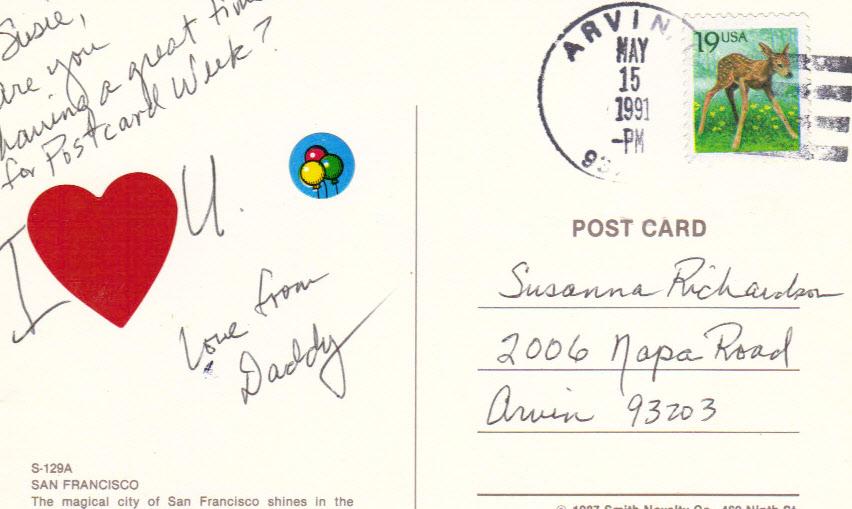 Susie,
are you
having a great time
for Postcard Week?
I U.
Love from
Daddy
S-129A
SAN FRANCISCO
The magical city of San Francisco shines in the
ARVIN
MAY
15
1991
-PM
93
19 USA
POST CARD
Susanna Richardson
2006 Napa Road
Arvin 93203
© 1987 Smith Novelty Co., 460 Ninth St.